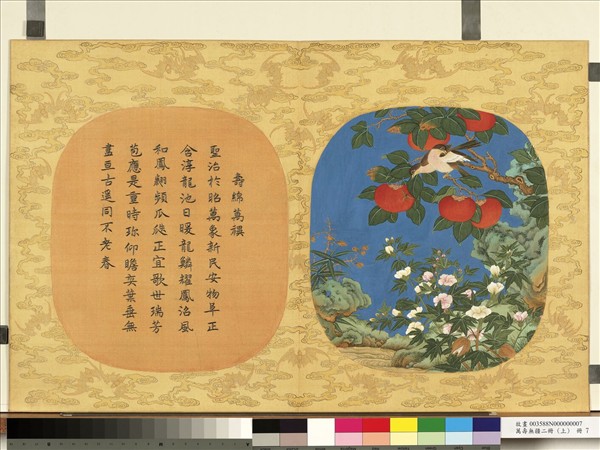 壽綿萬禩
聖治於昭萬象新民安物阜正
含淳龍池日暖龍鱗耀鳳沼風
和鳳翮頻瓜瓞正宜歌世瑞芳
苞應是重時珍仰瞻奕葉垂無
盡亘古遐同不老春
故畫 003588N000000007
萬壽無疆二冊（上） 冊 7